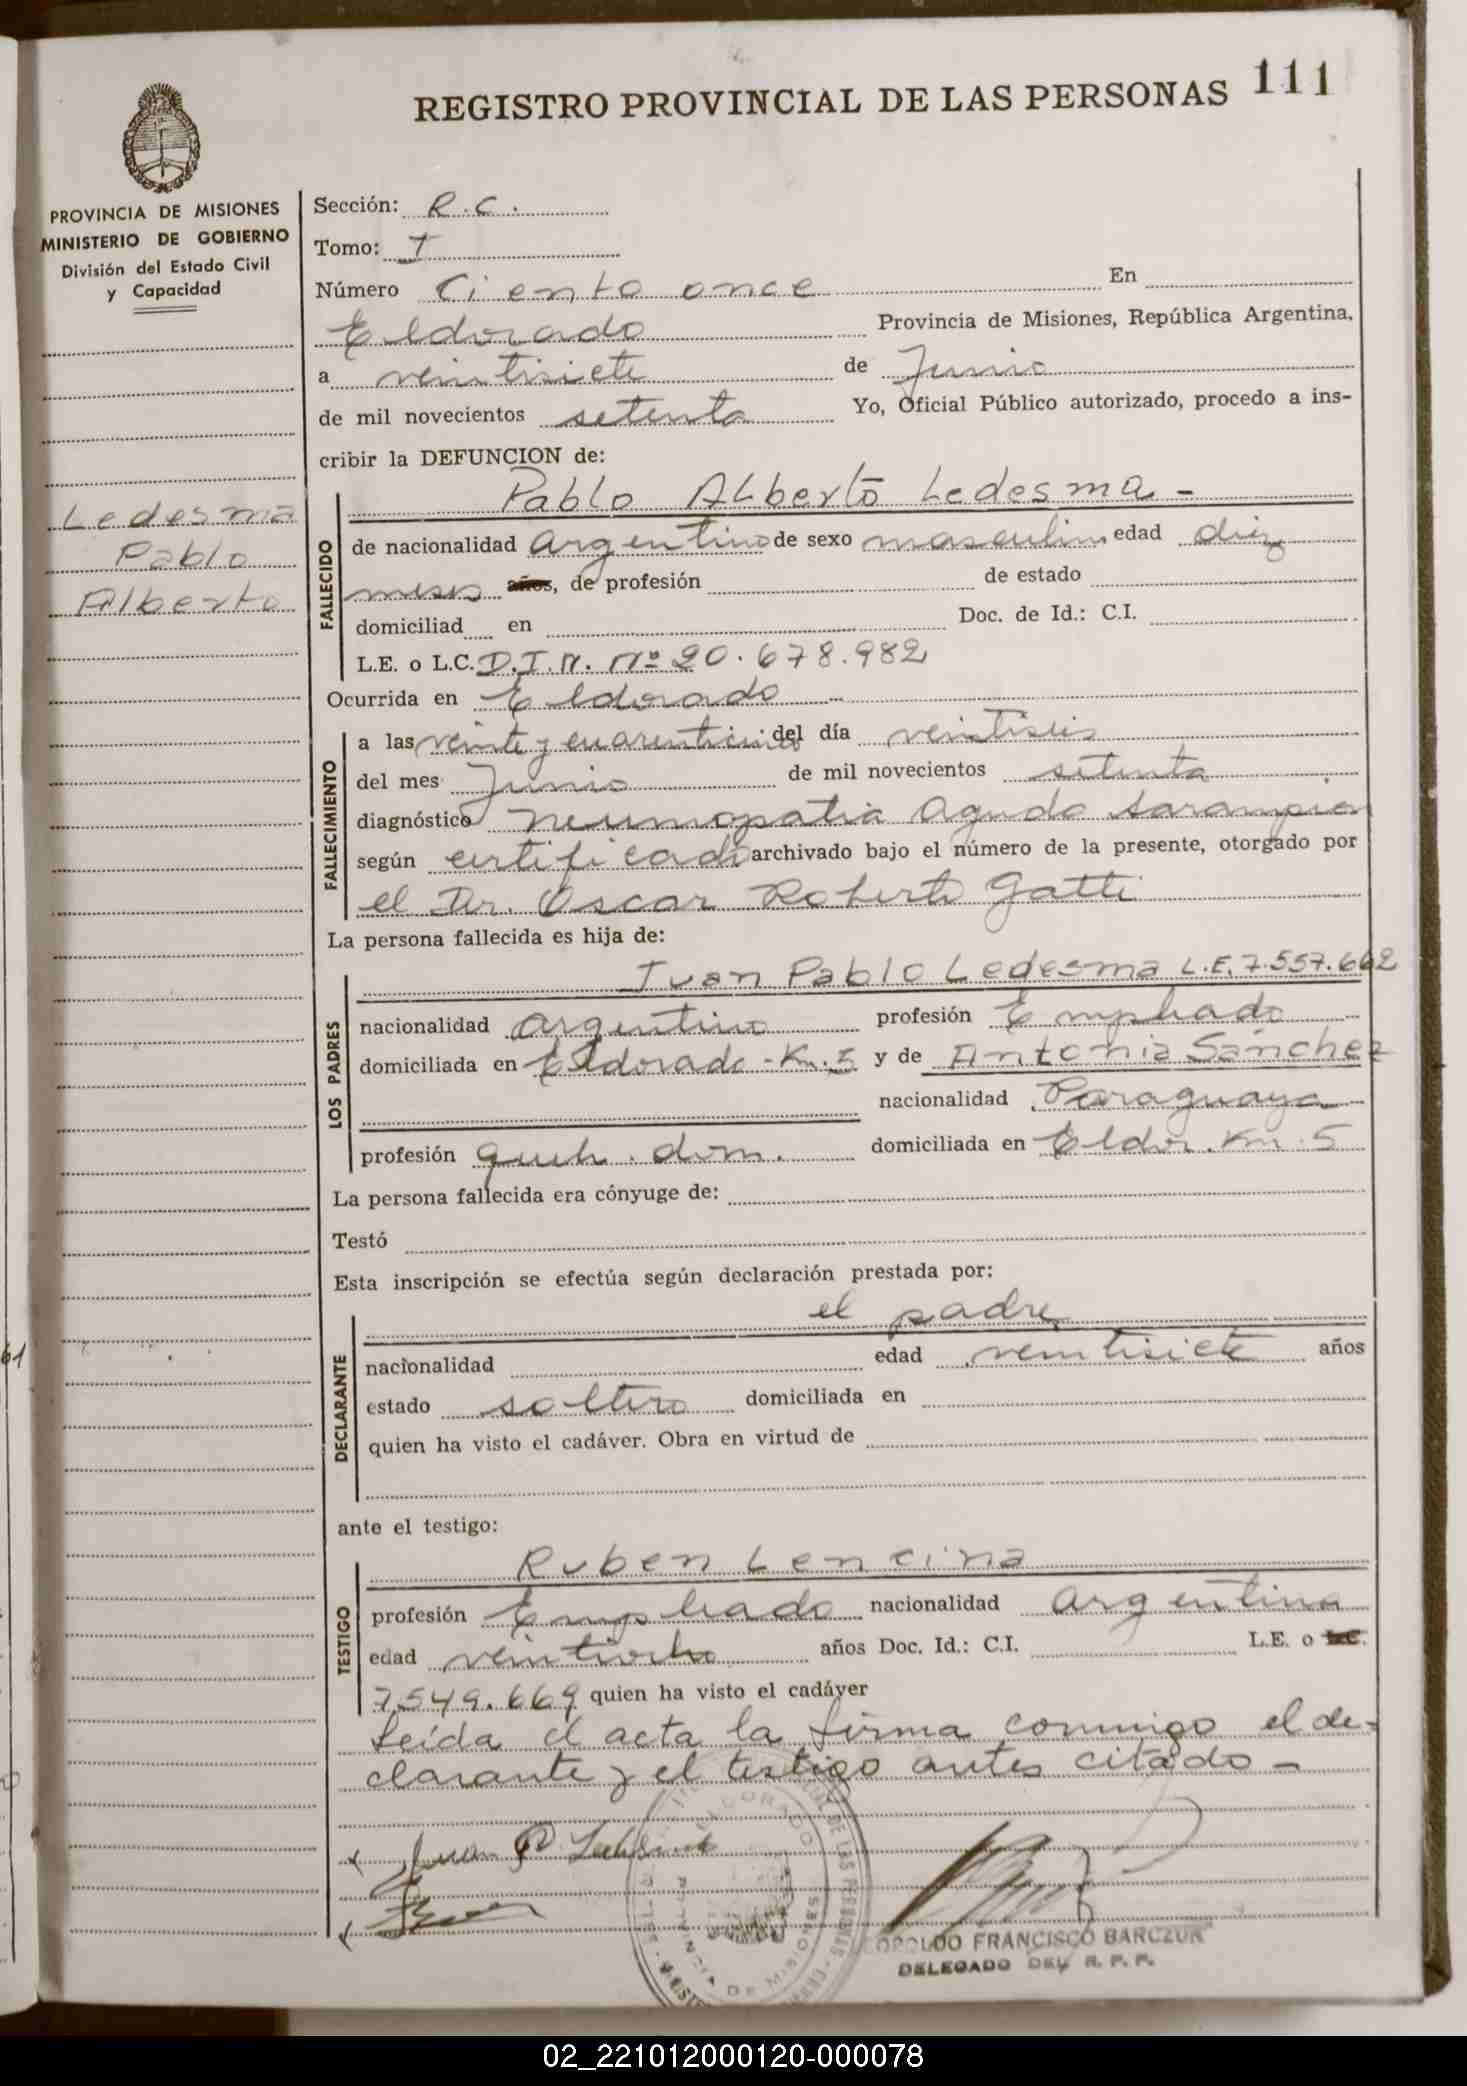 REGISTRO PROVINCIAL DE LAS PERSONAS 111
PROVINCIA DE MISIONES
MINISTERIO DE GOBIERNO
División del Estado Civil
y Capacidad
Ledesma
Pablo
Alberto
Sección: R.C.
Tomo: I
Número Ciento once En
Eldorado Provincia de Misiones, República Argentina,
a veintisiete de Junio
de mil novecientos setenta Yo, Oficial Público autorizado, procedo a ins-
cribir la DEFUNCION de:
FALLECIDO
Pablo ALberto Ledesma -
de nacionalidad argentino de sexo masculino edad diez
meses años, de profesión de estado
domiciliad en Doc. de Id.: C.I.
L.E. o L.C. D.I.N. Nº 20.678.982
Ocurrida en Eldorado
FALLECIMIENTO
a las veinte y cuarenticinco del día veintiseis
del mes Junio de mil novecientos setenta
diagnóstico neumopatia aguda sarampion
según certificado archivado bajo el número de la presente, otorgado por
el Dr. Oscar Roberto Gatti
La persona fallecida es hija de:
LOS PADRES
Juan Pablo Ledesma L.E. 7.557.662
nacionalidad argentino profesión Empleado
domiciliada en Eldorado - Km. 5 y de Antonia Sánchez
nacionalidad Paraguaya
profesión queh. dom. domiciliada en Eldor. Km. 5
La persona fallecida era cónyuge de:
Testó
Esta inscripción se efectúa según declaración prestada por:
DECLARANTE
el padre
nacionalidad edad veintisiete años
estado soltero domiciliada en
quien ha visto el cadáver. Obra en virtud de
ante el testigo:
TESTIGO
Ruben Lencina
profesión Empleado nacionalidad argentina
edad veintiocho años Doc. Id.: C.I. L.E. o L.C.
7.549.669 quien ha visto el cadáver
Leída el acta la firma conmigo el de-
clarante y el testigo antes citado -
Juan P.
ELDORADO
PROVINCIA DE MISIONES
DE LAS PERSONAS
LEOPOLDO FRANCISCO BARCZUK
DELEGADO DEL R.P.P.
61
02_221012000120-000078